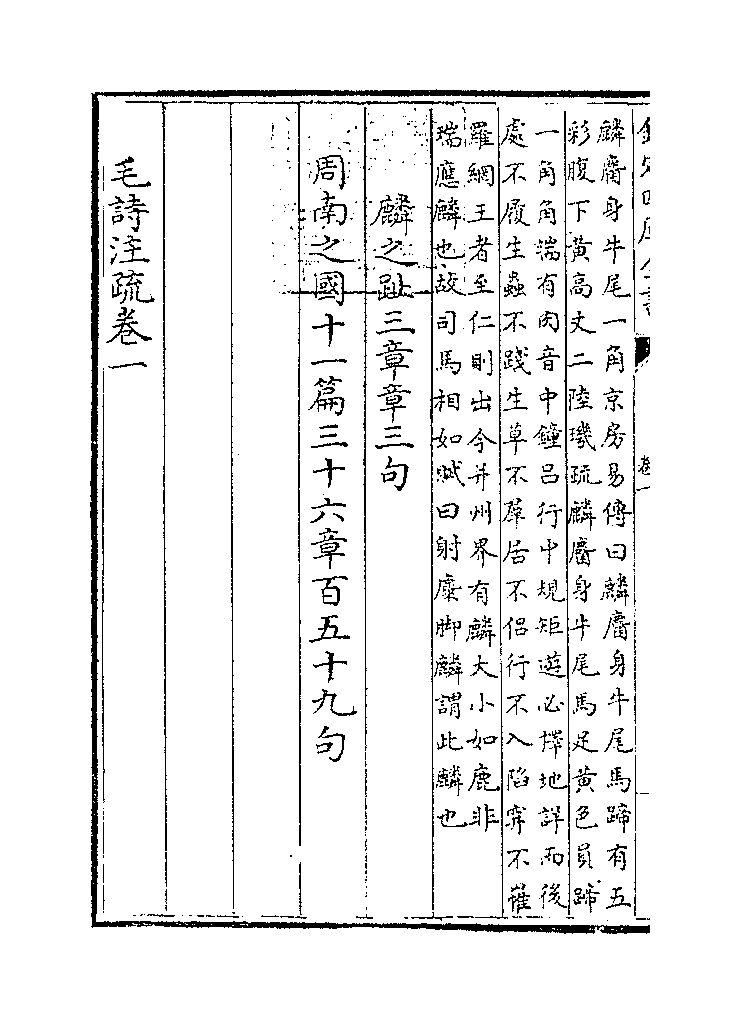 欽定四庫全書
卷一
麟麕身牛尾一角京房易傳曰麟麕身牛尾馬蹄有五
彩腹下黃高丈二陸璣疏麟麕身牛尾馬足黃色員蹄
一角角端有肉音中鐘呂行中規矩遊必擇地詳而後
處不履生蟲不踐生草不羣居不侶行不入陷穽不罹
羅網王者至仁則出今并州界有麟大小如鹿非
瑞應麟也故司馬相如賦曰射麋脚麟謂此麟也
麟之趾三章章三句
周南之國十一篇三十六章百五十九句
毛詩注疏卷一